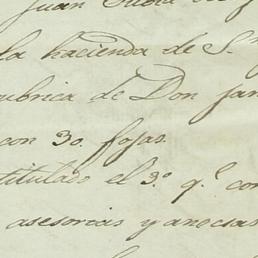 Juan
la hacienda de S.n
rubrica de Don
con 30. fojas.
titulado el 3.º q.e con
asesorias y anecsas